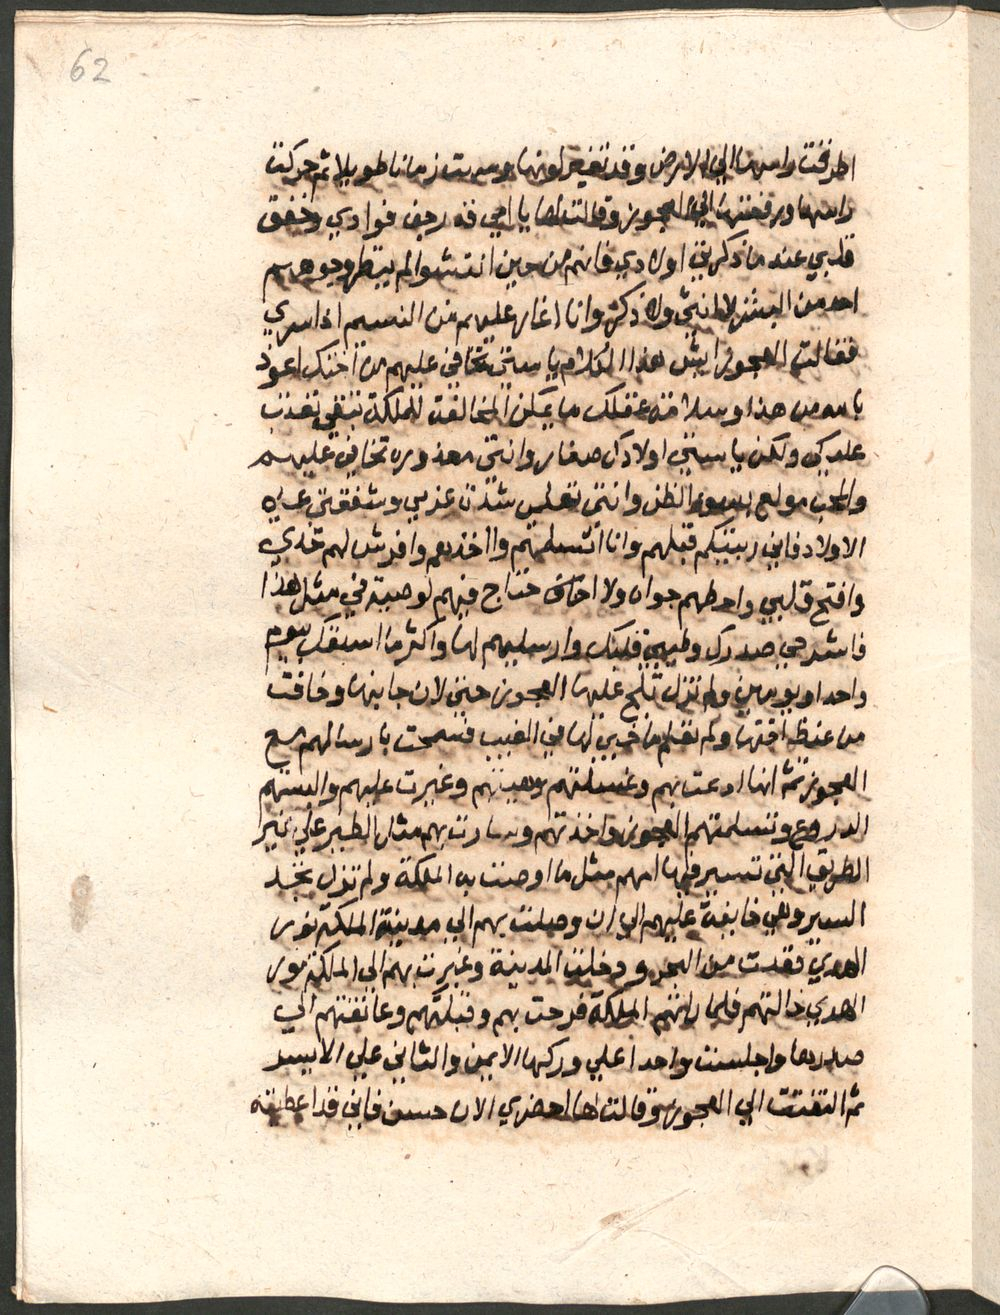 62
اطرقت راسها الي الارض وقد تغير لونها وسرت زمانا طويلا ثم حركت
راسها ورفعتها الي العجوز وقالت لها يا امي قد رجف فوادي وخفق
قلبي عند ما ذكرتي اولادي فانهم من حين انتشوا لم ينظر وجوههم
احد من البشر لا انثي ولا ذكر وانا اغار عليهم من النسيم اذا سري
فقالت العجوز ايش هذا الكلام يا ستي تخافي عليهم من اختك اعوذ
بالله من هذا وسلامة عقلك ما يمكن المخالفة للملكة تبقي تعتب
عليكي ولكن يا ستي اولادك صغار وانتي معذوره تخافي عليهم
والمحب مولع بسوء الظن وانتي تعلمي شدة عزمي وشفقتي علي
الاولاد فاني ربيتكم قبلهم وانا اتسلمهم واخذهم وافرش لهم خدي
وافتح قلبي واحطهم جواه ولا احتاج فيهم لوصية في مثل هذا
فاشرحي صدرك وطيبي قلبك وارسليهم لها واكثر ما اسبقك بيوم
واحد او يومين ولم تزل تلح عليها العجوز حتي لان جانبها وخافت
من غيظ اختها ولم تعلم ما خبي لها في الغيب فسمحت بارسالهم مع
العجوز ثم انها ادعت بهم وغسلتهم وهيتهم وغيرت عليهم والبستهم
الدروع وتسلمتهم العجوز واخذتهم وسارت بهم مثل الطير علي غير
الطريق التي تسير فيها امهم مثل ما اوصت به الملكة ولم تزل تجد
السير وهي خايفة عليهم الي ان وصلت بهم الي مدينة الملكة نور
الهدي فعدت من البحر ودخلت المدينة وعبرت بهم الي الملكة نور
الهدي خالتهم فلما راتهم الملكة فرحت بهم وقبلتهم وعانقتهم الي
صدرها واجلست واحدا علي وركها الايمن والثاني علي الايسر
ثم التفتت الي العجوز وقالت لها احضري الان حسن فاني قد اعطيته